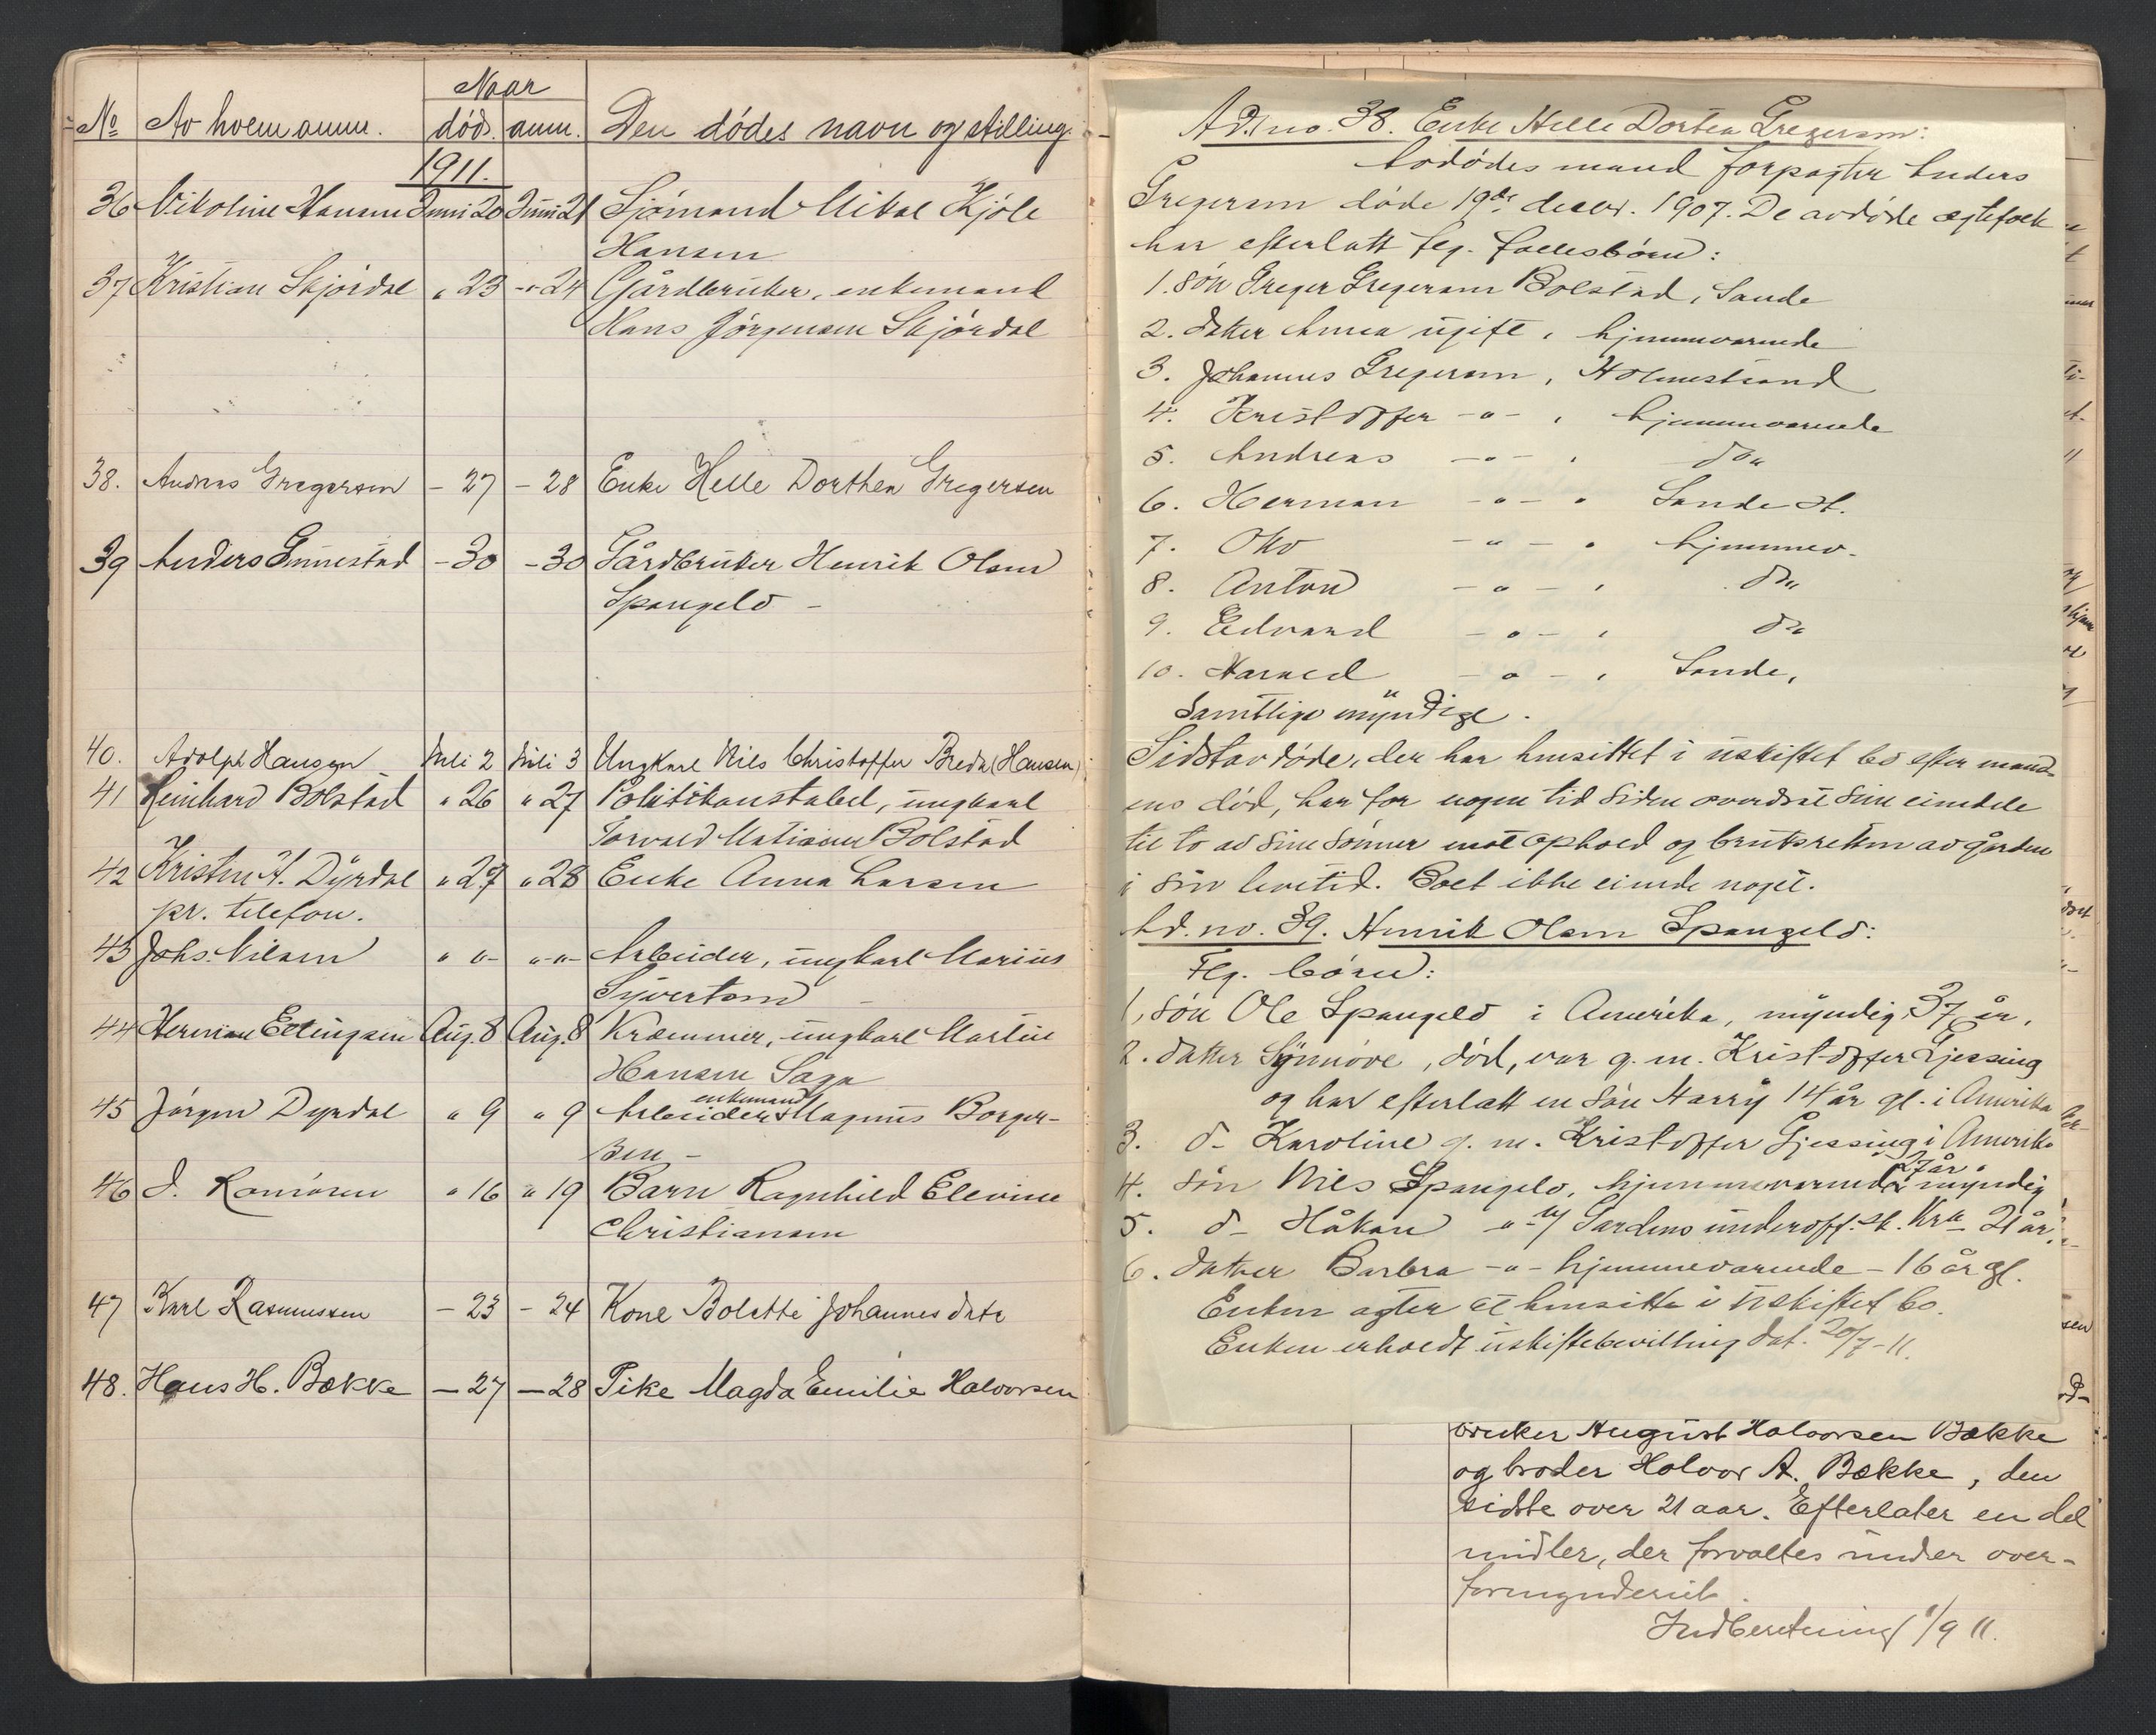 Naar
No Av hvem anm. død. anm. Den dødes navn og stilling.
1911.
36 Nikoline Hansen Juni 20 Juni 21 Sjømand Mikal Kjøle
Hansen
37 Kristian Skjørdal " 23 -"- 24 Gårdbruker, enkemand
Hans Jørgensen Skjørdal
38. Andreas Gregersen - 27 - 28 Enke Helle Dorthea Gregersen
39 Anders Gunnestad - 30 - 30 Gårdbruker Henrik Olsen
Spangelo -
40. Adolph Hansen Juli 2 Juli 3 Ungkarl Nils Christoffer Breda (Hansen)
41 Reinhard Bolstad " 26 " 27 Politikonstabel, ungkarl
Torvald Matisen Bolstad
42 Kristen A. Dyrdal " 27 " 28 Enke Anna Larsen
pr. telefon.
43 Johs. Nilsen " "- "-"- Arbeider, ungkarl Marius
Syvertsen
44 Herman Ellingsen Aug. 8 Aug. 8 Kræmmer, ungkarl Martin
Hansen Saga
enkemand
45 Jørgen Dyrdal " 9 " 9 Arbeider Magnus Borger-
sen -
46 J. " 16 " 19 Barn Ragnhild Elevine
Christiansen
47 Karl Rasmussen - 23 - 24 Kone Bolette Johannesdatr
48. Hans H. Bække - 27 - 28 Pike Magda Emilie Halvorsen
Ad. no. 38. Enke Helle Dortea Gregersen:
Avdødes mand forpagter Anders
Gregersen døde 19de decbr. 1907. De avdøde egtefolk
har efterlatt flg. fællesbørn:
1. Søn Greger Gregersen Bolstad, Sande
2. datter Anna ugift, hjemmeværende
3. Johannes Gregersen, Holmestrand
4. Kristoffer -"- , hjemmeværende
5. Andreas -"- , do "
6. Herman -"- , Sande st.
7. Otto -"- , hjemmev.
8. Anton -"- , do "
9. Edvard -"- , do "
10. Harald -"- , Sande,
Samtlige myndige.
Sidstavdøde, der har hensittet i uskiftet bo efter mand-
ens død, har for nogen tid siden overdrat sine eiendele
til to av sine sønner mot ophold og bruksretten av gården
i sin levetid. Boet ikke eiende noget.
Ad. no. 39. Henrik Olsen Spangelo:
Flg. børn:
1, Søn Ole Spangelo i Amerika, myndig, 37 år,
2. datter Synnøve, død, var g. m. Kristoffer Gjessing
og har efterlatt en søn Harry 14 år gl. i Amerika
3. d- Karoline g. m. Kristoffer Gjessing i Amerika
27 år.
4. Søn Nils Spangelo, hjemmeværende, myndig
5. d- Håkon -"- v/ Gardens underoff. sk. Kra 21 år.
6. datter Barbra -"- hjemmeværende - 16 år gl.
Enken agter at hensitte i uskiftet bo.
Enken erholdt uskiftebevilling dat. 20/7-11.
bruker August Halvorsen Bække
og broder Halvor A. Bække, den
sidste over 21 aar. Efterlater en del
midler, der forvaltes under over-
formynderiet.
Indberetning 1/9 11.